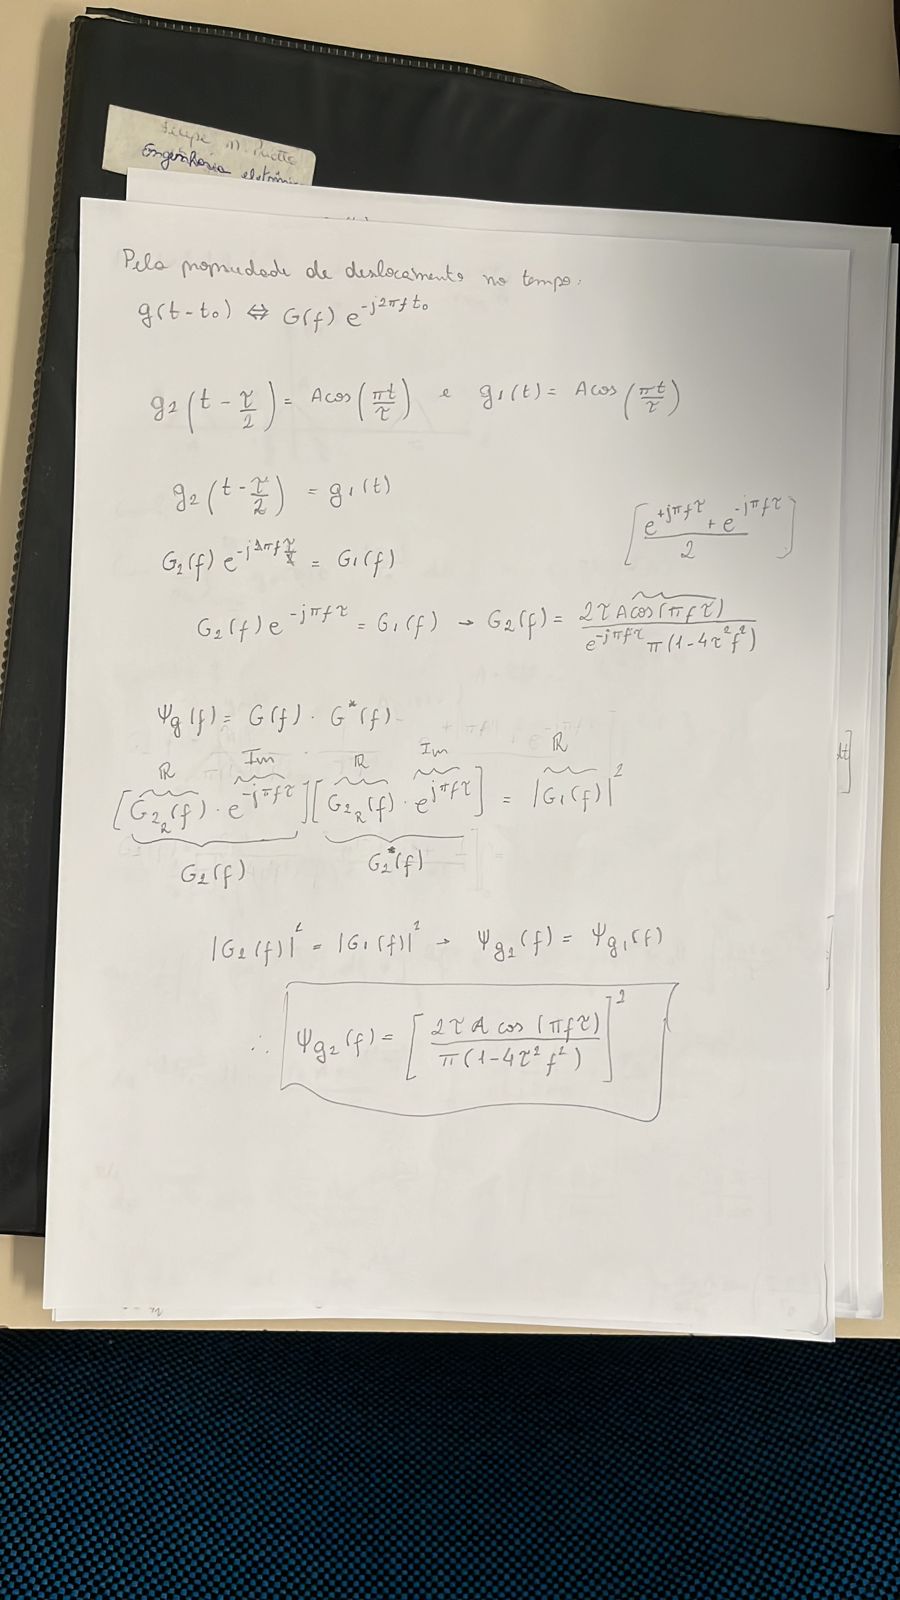 Engenharia eletrôni
Pela propriedade de deslocamento no tempo:
g(t-t₀) ⇔ G(f) e^{-j2πft₀}
g₂(t - τ/2) = A cos(πt/τ) e g₁(t) = A cos(πt/τ)
g₂(t - τ/2) = g₁(t)
[(e^{+jπfτ} + e^{-jπfτ})/2]
G₂(f) e^{-j2πfτ/2} = G₁(f)
G₂(f) e^{-jπfτ} = G₁(f) → G₂(f) = 2τA cos(πfτ) / e^{-jπfτ} π(1-4τ²f²)
Ψg(f) = G(f) · G*(f)
ℝ Im ℝ Im ℝ
[G₂ᵣ(f) · e^{-jπfτ}][G₂ᵣ(f) · e^{jπfτ}] = |G₁(f)|²
G₂(f) G₂*(f)
|G₂(f)|² = |G₁(f)|² → Ψg₂(f) = Ψg₁(f)
∴ Ψg₂(f) = [2τA cos(πfτ) / π(1-4τ²f²)]²